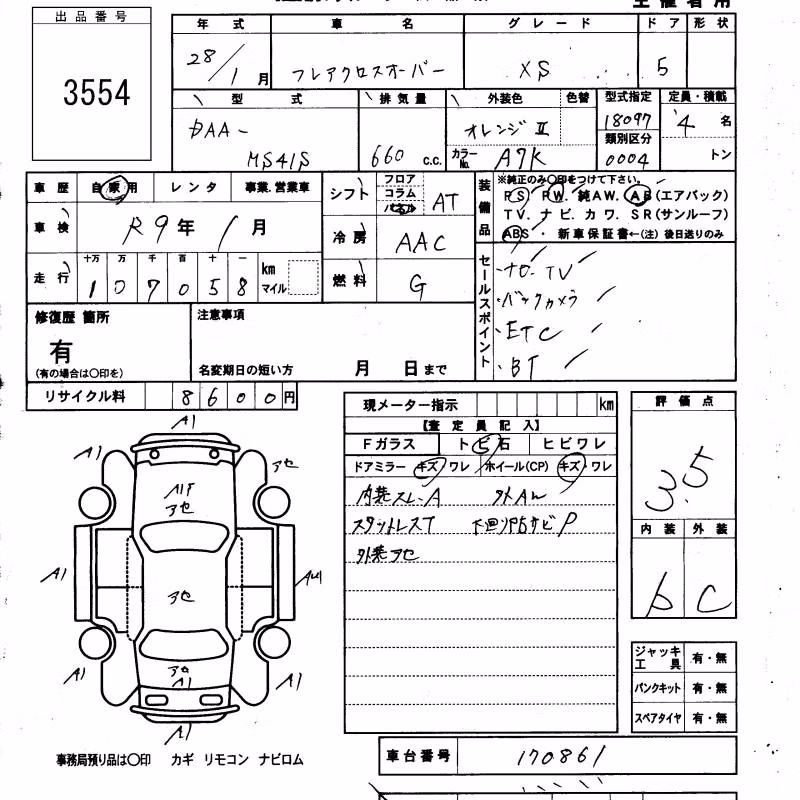 出品番号
3554
年式 車名 グレード ドア 形状
28/1月 フレアクロスオーバー XS 5
型式 排気量 外装色 色替 型式指定 定員・積載
DAA- MS41S 660 c.c. オレンジⅡ 18097 4名
カラーNo. A7K 類別区分 0004 トン
車歴 自家用 レンタ 事業.営業車
シフト フロア コラム パネル AT
車検 R9年1月
冷房 AAC
走行 十万 万 千 百 十 一 km マイル
107058
燃料 G
装備品
※純正のみ〇印をつけて下さい。
PS PW. 純AW. AB(エアバック)
TV. ナビ. カワ. SR(サンルーフ)
ABS・新車保証書←(注)後日送りのみ
セールスポイント
・ナビ・TV
・バックカメラ
・ETC
・BT
修復歴 箇所
有
(有の場合は〇印を)
注意事項
名変期日の短い方 月 日まで
リサイクル料 8600円
現メーター指示 km
【査定員記入】
Fガラス トビ石 ヒビワレ
ドアミラー キズ/ワレ ホイール(CP) キズ・ワレ
内装スレ-A
スタットレスT 下回り内サビP
外装アセ
評価点
3.5
内装 外装
b C
A1
アセ
A1
A1F
アセ
A1
アセ
A1
A1
A1
A1
ジャッキ工具 有・無
パンクキット 有・無
スペアタイヤ 有・無
車台番号 170861
事務局預り品は〇印 カギ リモコン ナビロム